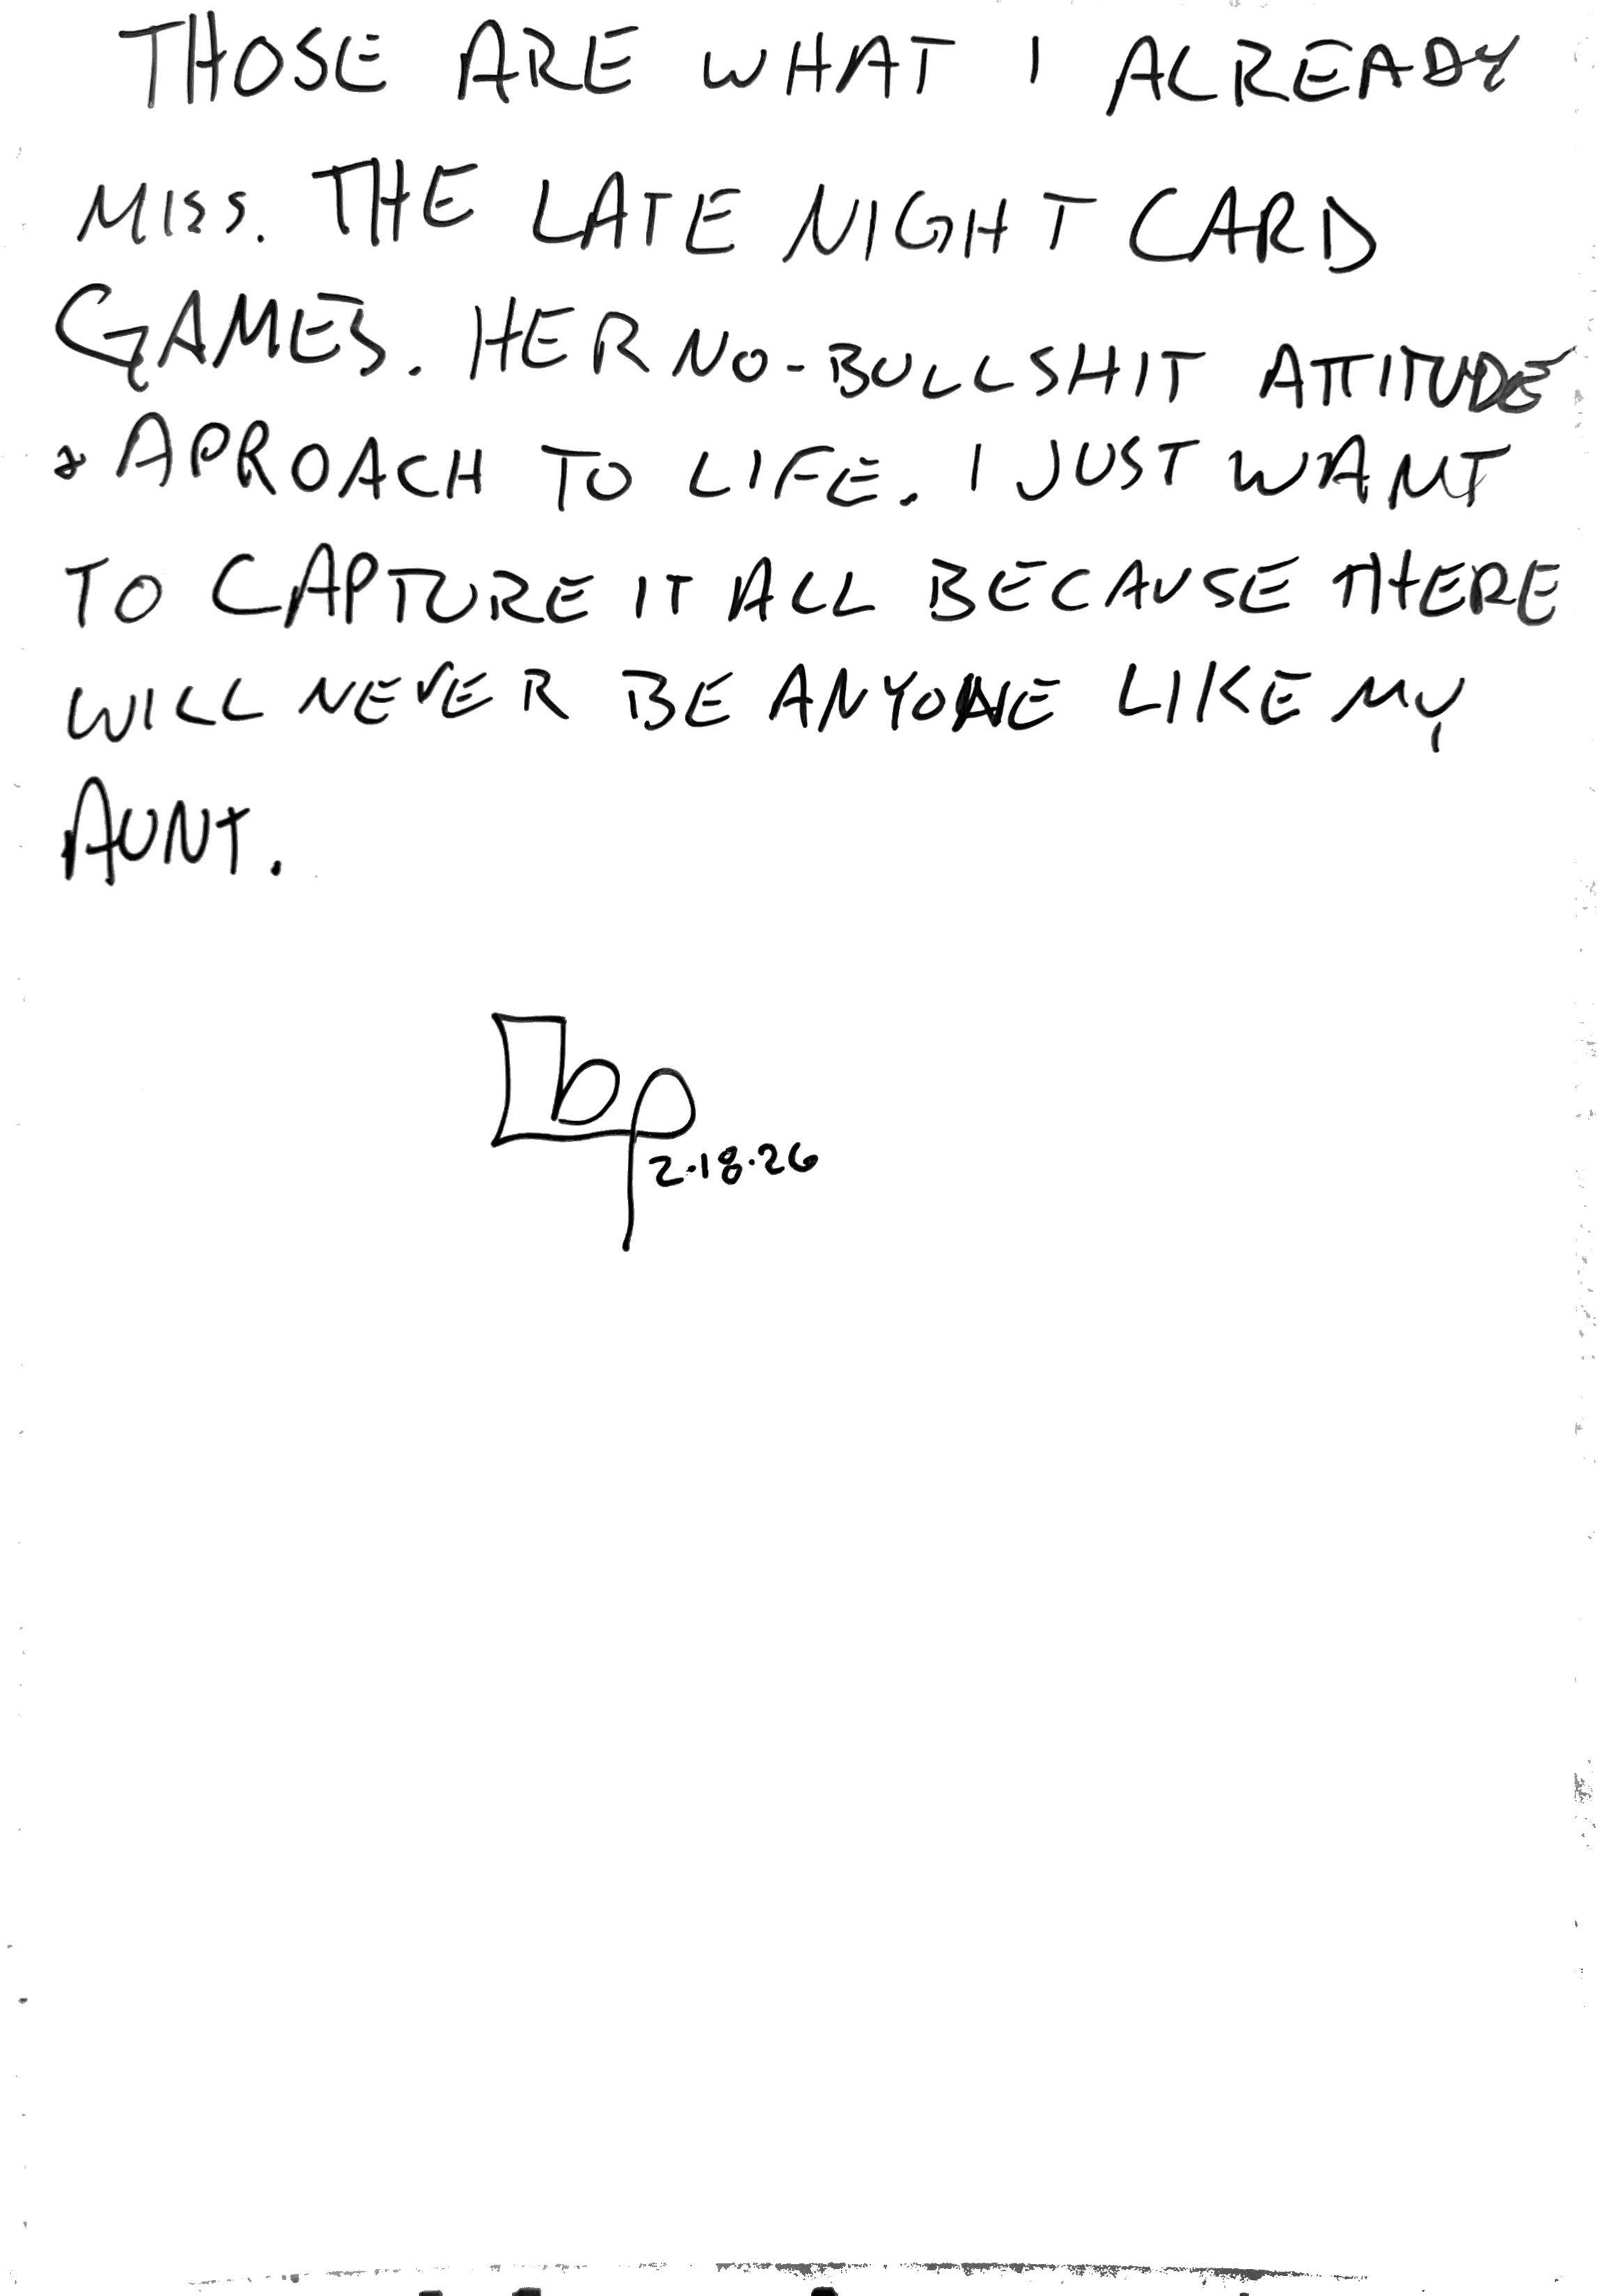 THOSE ARE WHAT I ALREADY
MISS. THE LATE NIGHT CARD
GAMES. HER NO-BULLSHIT ATTITUDE
& APROACH TO LIFE. I JUST WANT
TO CAPTURE IT ALL BECAUSE THERE
WILL NEVER BE ANYONE LIKE MY
AUNT.
bp
2.18.26